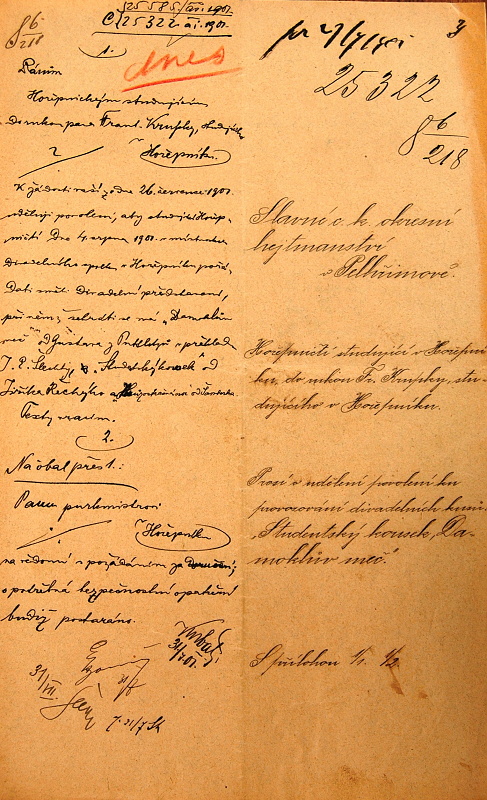 86/218
25585/ai. 1901
Č. 25322 ai. 1901.
dnes
1.
Pánům
Hořepnickým studujícím
do rukou pana Frant. Krupky,
v Hořepníku.
K žádosti ze dne 26. července 1901
uděluji povolení, aby studující Hořep-
ničtí dne 4. srpna 1901 v místnostech
divadelního spolku v Hořepníku pořá-
dati směli divadelní představení,
při něm sehráti se má „Damoklův
meč" od Gustava z Putlitzů v překladu
"Studentský kousek" od
Texty vracím.
2.
Na obal přes 1.:
Panu purkmistrovi
v Hořepníku
na vědomí s požádáním za
o potřebná bezpečnostní opatření
budiž postaráno.
31/7 01.
31/VII.
31/7
3
25322
86/218
Slavné c. k. okresní
hejtmanství
v Pelhřimově.
Hořepničtí studující v Hořepní-
ku, do rukou Fr. Krupky, stu-
dujícího v Hořepníku.
Prosí o udělení povolení ku
provozování divadelních kusů
„Studentský kousek, Da-
moklův meč."
S přílohou 1/1. 1/2